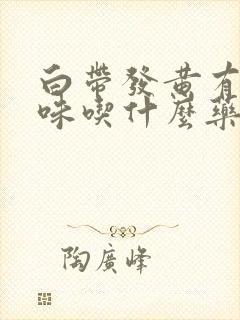 白帶發黃有
味喫什麼藥
陶廣峰